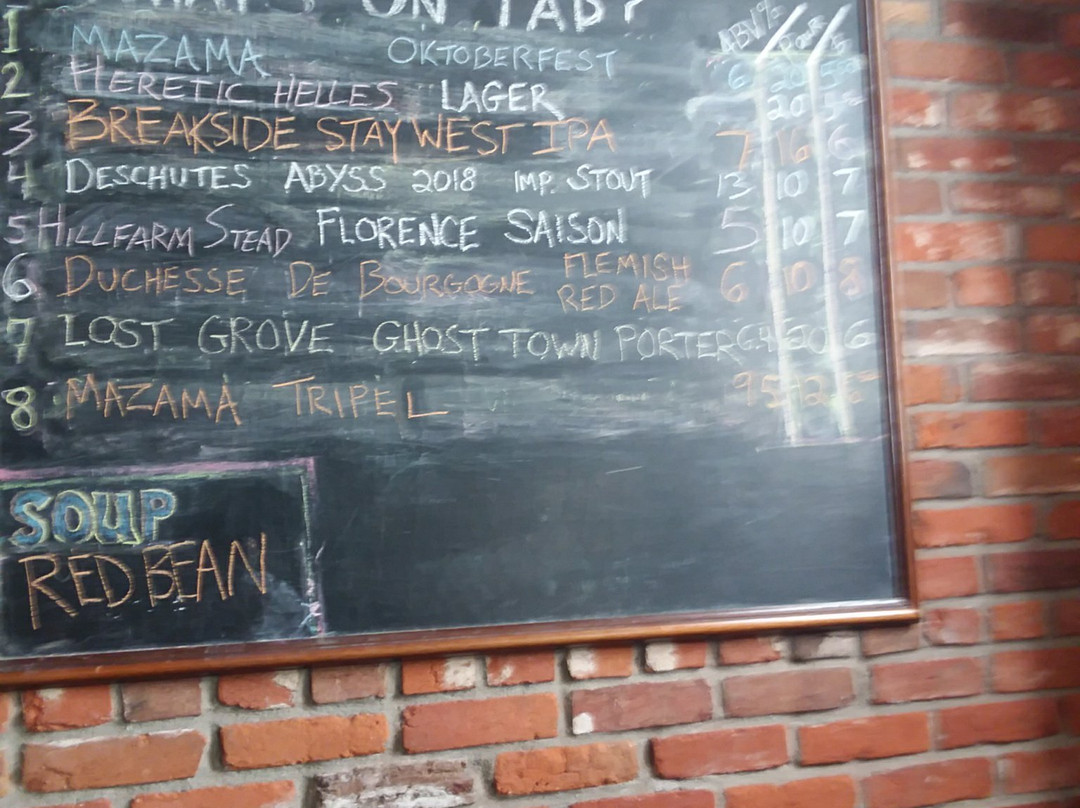 ON TAP?
ABV% $
1 MAZAMA OKTOBERFEST 6 20
2 HERETIC HELLES LAGER 20
3 BREAKSIDE STAY WEST IPA 7 16 6
4 DESCHUTES ABYSS 2018 IMP. STOUT 13 10 7
5 HILLFARM STEAD FLORENCE SAISON 5 10 7
6 DUCHESSE DE BOURGOGNE FLEMISH RED ALE 6 10 8
7 LOST GROVE GHOST TOWN PORTER 6.4 20 6
8 MAZAMA TRIPEL
SOUP
RED BEAN